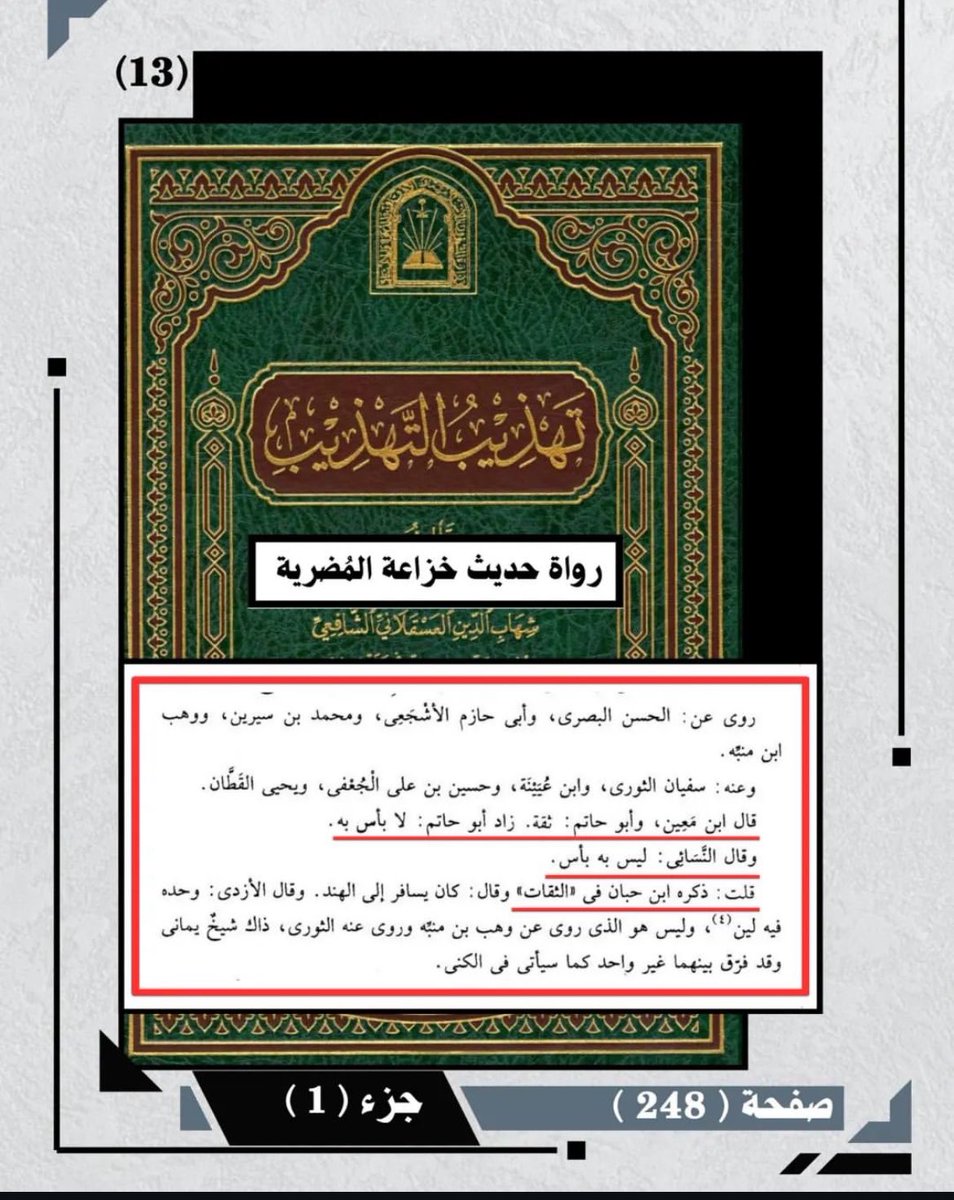 (13)
تَهذِيبُ التَّهذِيبِ
رواة حديث خزاعة المُضرية
شِهَابِ الدِّينِ العَسْقَلَانِيِّ الشَّافِعِيِّ
روى عن: الحسن البصرى، وأبى حازم الأشْجَعِى، ومحمد بن سيرين، ووهب
ابن منبّه.
وعنه: سفيان الثورى، وابن عُيَيْنَة، وحسين بن على الْجُعْفى، ويحيى القَطَّان.
قال ابن مَعِين، وأبو حاتم: ثقة. زاد أبو حاتم: لا بأس به.
وقال النَّسَائِى: ليس به بأس.
قلت: ذكره ابن حبان فى «الثقات» وقال: كان يسافر إلى الهند. وقال الأزدى: وحده
فيه لين(٤)، وليس هو الذى روى عن وهب بن منبّه وروى عنه الثورى، ذاك شيخٌ يمانى
وقد فرّق بينهما غير واحد كما سيأتى فى الكنى.
صفحة ( 248 ) جزء ( 1 )